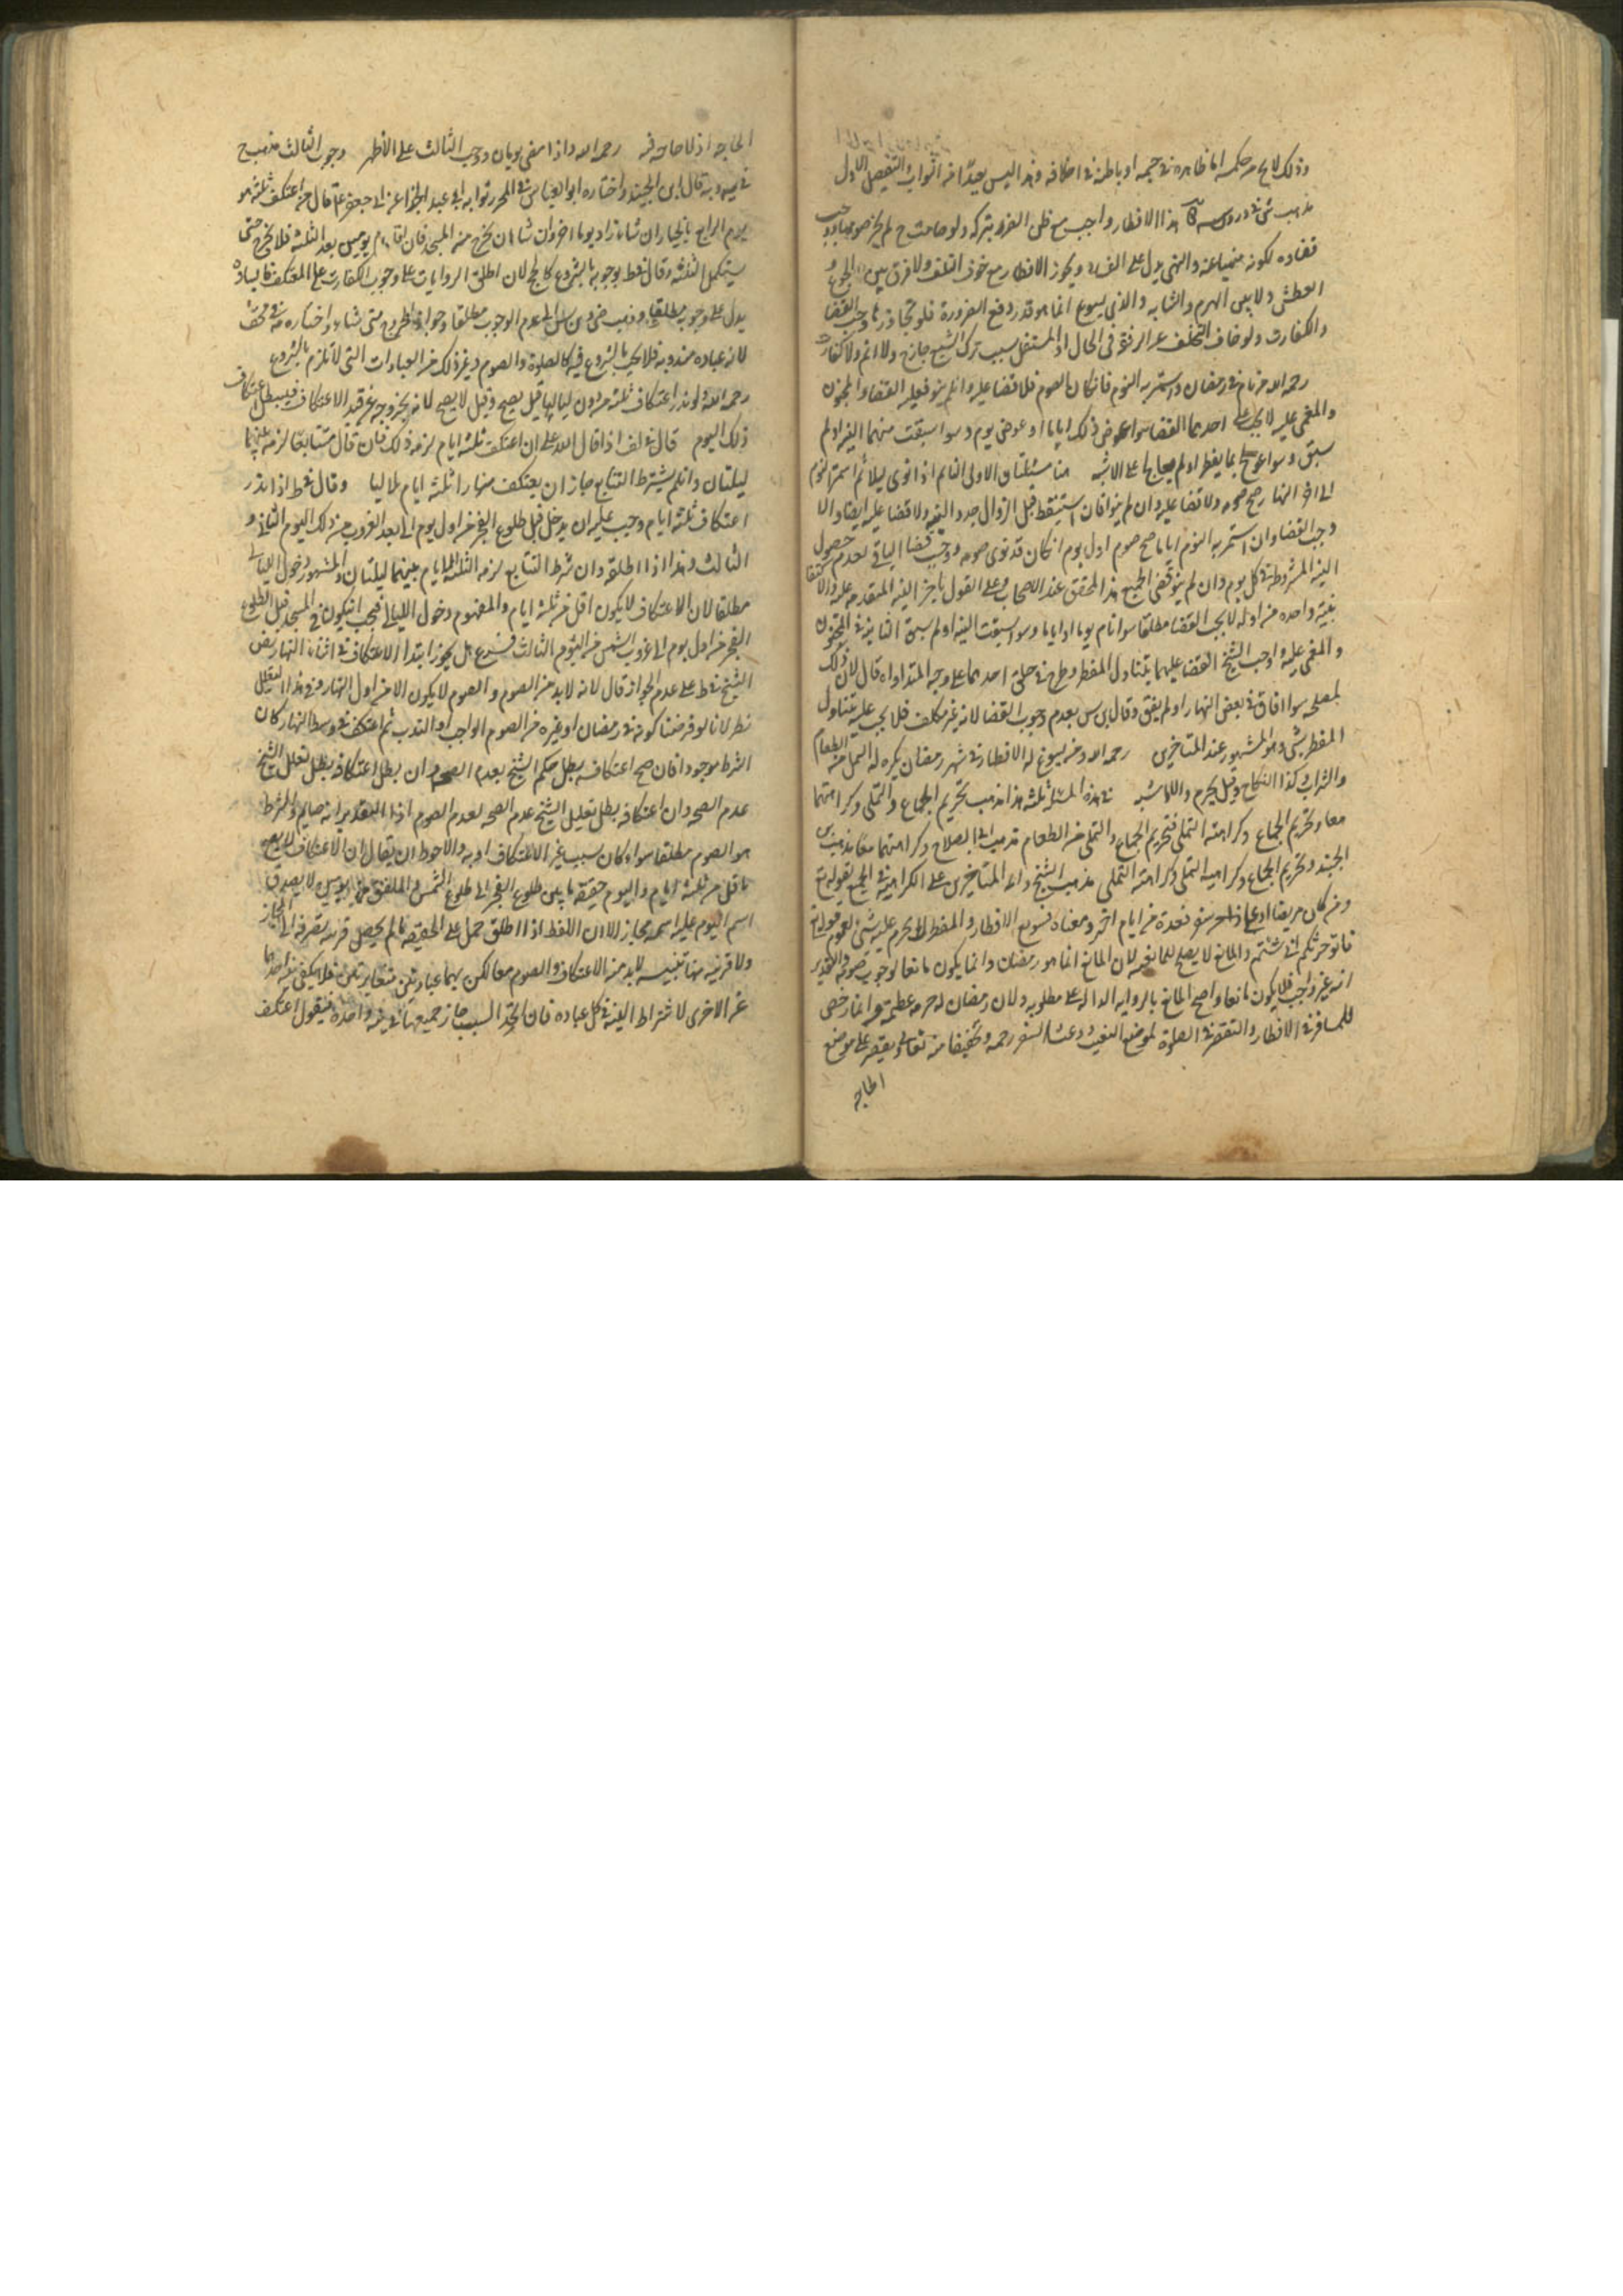 وذلك لا يخ من حكمه اما ظاهره في جسمه او باطنة في اضعافه وهذا ليس بعيدًا من الصواب والتفصيل الاول
مذهب هذا الافطار واجب مع ظن الضرر بتركه ولو صامه ح لم يجز صومه ووجب
قضاءه لكونه منهيا عنه والنهي يدل على الفساد ويجوز الافطار مع خوف التلف ولا فرق بين الجوع و
العطش ولا بين الهرم والشابه والذي يسوغ انما هو قدر دفع الضرورة فلو تجاوزها وجب القضا
والكفارت ولو خاف التخلف عن الرفقة في الحال او المستقبل بسبب ترك الشبع جازح ولا اثم ولا كفارت
رحمه الله من نام في رمضان واستمر به النوم فان كان نوى الصوم فلا قضا عليه وان لم ينو فعليه القضا والمجنون
والمغمى عليه لا يجب على احدهما القضا سوا عرض ذلك اياما او عرض يوم وسوا سبقت منهما النيه او لم
سبق وسوا عولج بما يفطر او لم يعالج على الاشبه هنا مسئلتان الاولى النايم اذا نوى ليلا ثم استمر النوم
الى اخر النهار صح صومه ولا قضا عليه وان لم ينو فان استيقظ قبل الزوال جدد النيه ولا قضا عليه ايضا والا
وجب القضا وان استمر به النوم اياما صح صوم اول يوم ان كان قد نوى صومه ووجب قضا الباقي لعدم حصول
النية المشروطة في كل يوم وان لم ينو قضى الجميع هذا المحقق عند الاصحاب وعلى القول باجزا النيه المتقدمه عليه والاكتفا
بنية واحده من اوله لا يجب القضا مطلقا سوا نام يوما او اياما وسوا سبقت النيه او لم سبق الثانيه في المجنون
والمغمى عليه واوجب الشيخ القضا عليهما بتناول المفطر وطرح في حلق احدهما على وجه المداواه قال لان ذلك
لمصلحه سوا افاق في بعض النهار او لم يفق وقال ابن س بعدم وجوب القضا لانه غير مكلف فلا يجب عليه بتناول
المفطر شي وهو المشهور عند المتاخرين رحمه الله ومن يسوغ له الافطار في شهر رمضان يكره له التملي من الطعام
والشراب وكذا النكاح وقيل يحرم والاول اشبه في هذه المسئلة ثلثه مذاهب تحريم الجماع والتملي وكراهتهما
معا وتحريم الجماع وكراهته التملي فتحريم الجماع والتملي من الطعام مذهب ابي الصلاح وكراهتهما معا مذهب بن
الجنيد وتحريم الجماع وكراهيه التملي مذهب الشيخ واكثر المتاخرين على الكراهية في الجميع لقوله تع
ومن كان مريضا او على سفر فعدة من ايام اخر ومعناه تسويغ الافطار والمفطر لا يحرم عليه شي لعموم قوله تع
فاتوا حرثكم انى شئتم والمانع لا يصلح للمانعيه لان المانع انما هو رمضان وانما يكون مانعا لوجوب صومه والتقدير
انه غير واجب فلا يكون مانعا واحتج المانع بالروايه الداله على مطلوبه ولان رمضان له حرمه عظيمة وانما رخص
للمسافر في الافطار والتقصير في الصلوة لموضع التعب ووعثاء السفر رحمه وتخفيفا منه تعالى فيقتصر على موضع
الحاجه
الحاجه اذ لا حاجه فيه رحمه الله واذا مضى يومان وجب الثالث على الاظهر وجوب الثالث مذهب ح
في وبه قال ابن الجنيد واختاره ابو العباس في المحرر لروايه ابي عبيد الحذا عن ابي جعفر ع قال من اعتكف ثلثه هو
يوم الرابع بالخيار ان شاء زاد يوما اخر وان شا ان يخرج من المسجد فان اقام يومين بعد الثلثه فلا يخرج حتى
يستكمل الثلثه وقال في ط بوجوبه بالشروع كالحج لان اطلاق الروايات على وجوب الكفارت على المعتكف بافساده
يدل على وجوبه مطلقا وذهب المرتضى وبن ادريس الى عدم الوجوب مطلقا وجواز الخروج متى شاء واختاره في لف
لانه عباده مندوبه فلا تجب بالشروع فيه كالصلوة والصوم وغير ذلك من العبادات التي لا تلزم بالشروع
رحمه الله لو نذر اعتكاف ثلثه من دون لياليها قيل يصح وقيل لا يصح لانه بخروجه عن قيد الاعتكاف فيبطل اعتكاف
ذلك اليوم قال في لف اذا قال لله علي ان اعتكف ثلثه ايام لزمه ذلك فان قال متتابعا لزمه بينهما
ليلتان وان لم يشترط التتابع جاز ان يعتكف نهارا ثلثه ايام بلا ليال وقال في ط اذا نذر
اعتكاف ثلثه ايام وجب عليه ان يدخل قبل طلوع الفجر من اول يوم الى بعد الغروب من ذلك اليوم الثاني و
الثالث وهذا اذا اطلقه وان شرط التتابع لزمه الثلثه الايام بينهما ليلتان والمشهور دخول الليالي
مطلقا لان الاعتكاف لا يكون اقل من ثلثه ايام والمفهوم دخول الليالي فيجب ان يكون في المسجد قبل طلوع
الفجر من اول يوم الى غروب الشمس من اليوم الثالث فرع هل يجوز ابتدا الاعتكاف في اثناء النهار نص
الشيخ في ط على عدم الجواز قال لانه لا بد من الصوم والصوم لا يكون الا من اول النهار وفي هذا التعليل
نظر لانا لو فرضنا كونه في رمضان او غيره من الصوم الواجب او الندب ثم اعتكف في وسط النهار كان
الشرط موجودا فان صح اعتكافه بطل حكم الشيخ بعدم الصحه وان بطل اعتكافه بطل تعليل الشيخ
عدم الصحه وان اعتكافه بطل تعليل الشيخ عدم الصحه لعدم الصوم اذ التقدير انه صايم والشرط
هو الصوم مطلقا سواء كان بسبب غير الاعتكاف او به والاحوط ان يقال ان الاعتكاف لا يصح
باقل من ثلثه ايام واليوم حقيقة ما بين طلوع الفجر الى طلوع الشمس والملفق من يومين لا يصدق
اسم اليوم عليه اسمه مجاز الا ان اللفظ اذا اطلق حمل على الحقيقه ما لم يحصل قرينه تصرفه الى المجاز
ولا قرينه هنا تنبيه لا بد من الاعتكاف والصوم معا لكن هما عبادتان متغايرتان فلا يكفي نيه احدهما
عن الاخرى لاشتراط النية في كل عباده فان اتحد السبب جاز جمعهما في نيه واحدة فيقول اعتكف